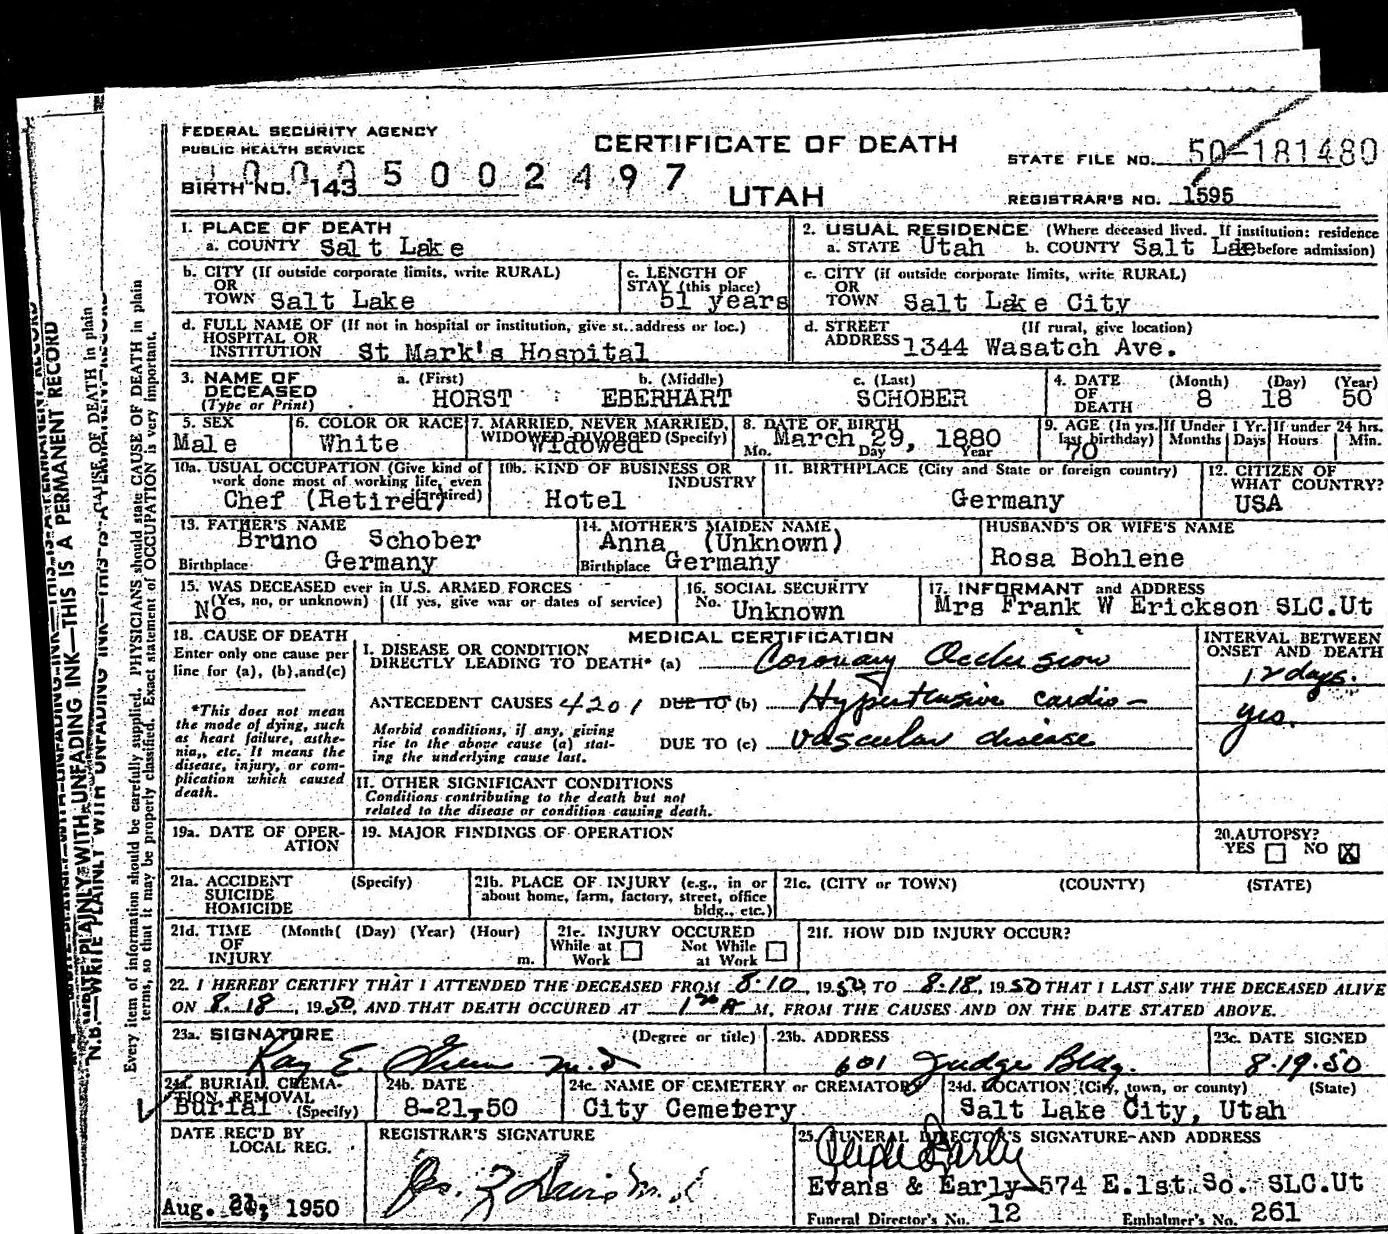 FEDERAL SECURITY AGENCY
PUBLIC HEALTH SERVICE
CERTIFICATE OF DEATH
STATE FILE NO. 50-181480
0005002497
BIRTH NO. 143
UTAH
REGISTRAR'S NO. 1595
1. PLACE OF DEATH
a. COUNTY Salt Lake
2. USUAL RESIDENCE (Where deceased lived. If institution: residence
a. STATE Utah b. COUNTY Salt Lae before admission)
b. CITY (If outside corporate limits, write RURAL)
OR
TOWN Salt Lake
c. LENGTH OF
STAY (this place)
51 years
c. CITY (if outside corporate limits, write RURAL)
OR
TOWN Salt Lake City
d. FULL NAME OF (If not in hospital or institution, give st. address or loc.)
HOSPITAL OR
INSTITUTION St Mark's Hospital
d. STREET (If rural, give location)
ADDRESS 1344 Wasatch Ave.
3. NAME OF
DECEASED
(Type or Print)
a. (First) b. (Middle) c. (Last)
HORST EBERHART SCHOBER
4. DATE
OF
DEATH
(Month) (Day) (Year)
8 18 50
5. SEX
Male
6. COLOR OR RACE
White
7. MARRIED, NEVER MARRIED,
WIDOWED DIVORCED (Specify)
Widowed
8. DATE OF BIRTH
March 29, 1880
Mo. Day Year
9. AGE (In yrs.
last birthday)
70
If Under 1 Yr.
Months Days
If under 24 hrs.
Hours Min.
10a. USUAL OCCUPATION (Give kind of
work done most of working life, even
if retired)
Chef (Retired)
10b. KIND OF BUSINESS OR
INDUSTRY
Hotel
11. BIRTHPLACE (City and State or foreign country)
Germany
12. CITIZEN OF
WHAT COUNTRY?
USA
13. FATHER'S NAME
Bruno Schober
Birthplace Germany
14. MOTHER'S MAIDEN NAME
Anna (Unknown)
Birthplace Germany
HUSBAND'S OR WIFE'S NAME
Rosa Bohlene
15. WAS DECEASED ever in U.S. ARMED FORCES
(Yes, no, or unknown) (If yes, give war or dates of service)
No
16. SOCIAL SECURITY
No. Unknown
17. INFORMANT and ADDRESS
Mrs Frank W Erickson SLC.Ut
18. CAUSE OF DEATH
Enter only one cause per
line for (a), (b), and (c)
*This does not mean
the mode of dying, such
as heart failure, asthe-
nia,, etc. It means the
disease, injury, or com-
plication which caused
death.
MEDICAL CERTIFICATION
I. DISEASE OR CONDITION
DIRECTLY LEADING TO DEATH* (a) Coronary Occlusion
ANTECEDENT CAUSES 4201 DUE TO (b) Hypertensive cardio-
Morbid conditions, if any, giving
rise to the above cause (a) stat-
ing the underlying cause last.
DUE TO (c) vascular disease
INTERVAL BETWEEN
ONSET AND DEATH
12 days.
yrs.
II. OTHER SIGNIFICANT CONDITIONS
Conditions contributing to the death but not
related to the disease or condition causing death.
19a. DATE OF OPER-
ATION
19. MAJOR FINDINGS OF OPERATION
20. AUTOPSY?
YES NO X
21a. ACCIDENT (Specify)
SUICIDE
HOMICIDE
21b. PLACE OF INJURY (e.g., in or
about home, farm, factory, street, office
bldg., etc.)
21c. (CITY or TOWN) (COUNTY) (STATE)
21d. TIME (Month( (Day) (Year) (Hour)
OF
INJURY m.
21e. INJURY OCCURED
While at Work Not While at Work
21f. HOW DID INJURY OCCUR?
22. I HEREBY CERTIFY THAT I ATTENDED THE DECEASED FROM 8.10, 1950, TO 8.18, 1950 THAT I LAST SAW THE DECEASED ALIVE
ON 8.18, 1950, AND THAT DEATH OCCURED AT M, FROM THE CAUSES AND ON THE DATE STATED ABOVE.
23a. SIGNATURE (Degree or title)
Ray E. M.D
23b. ADDRESS
601 Judge Bldg.
23c. DATE SIGNED
8.19.50
24a. BURIAL, CREMA-
TION, REMOVAL
Burial (Specify)
24b. DATE
8-21-50
24c. NAME OF CEMETERY or CREMATORY
City Cemetery
24d. LOCATION (City, town, or county) (State)
Salt Lake City, Utah
DATE REC'D BY
LOCAL REG.
Aug. 21, 1950
REGISTRAR'S SIGNATURE
25. FUNERAL DIRECTOR'S SIGNATURE AND ADDRESS
Clyde Early
Evans & Early 574 E.1st.So. SLC.Ut
Funeral Director's No. 12 Embalmer's No. 261
N.B.—WRITE PLAINLY WITH UNFADING INK—THIS IS A PERMANENT RECORD
Every item of information should be carefully supplied. PHYSICIANS should state CAUSE OF DEATH in plain
terms, so that it may be properly classified. Exact statement of OCCUPATION is very important.